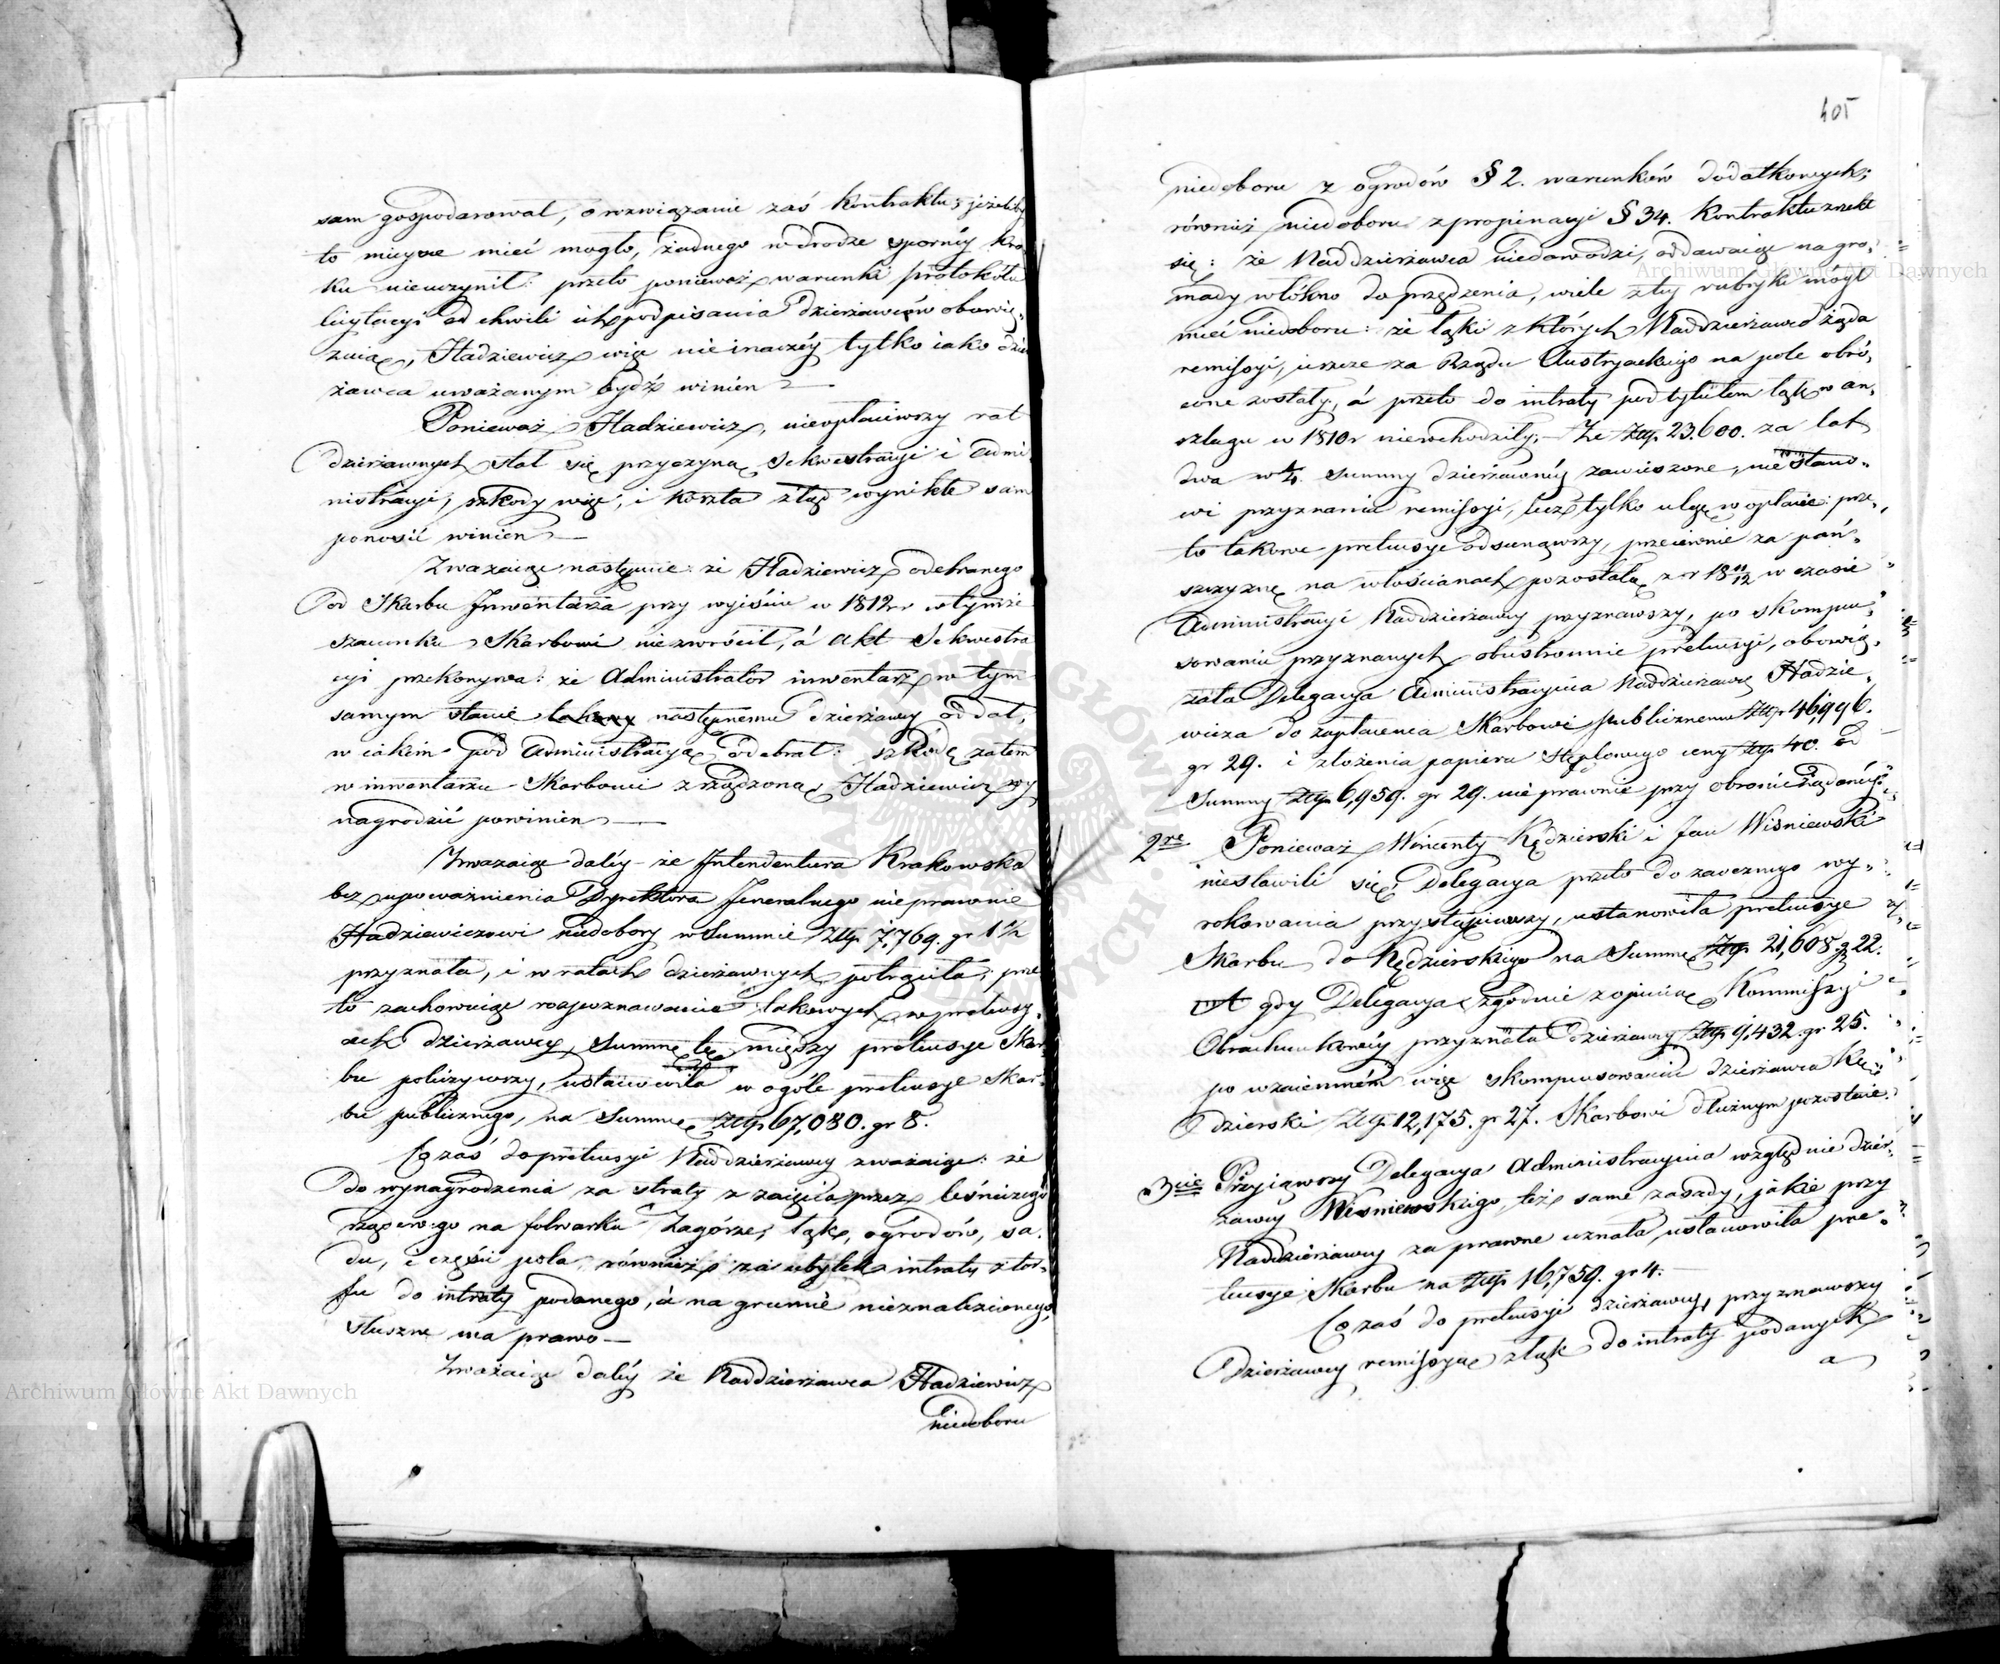 sam gospodarował, o rozwiązanie zaś Kontraktu, jeżeliby
to mieysce mieć mogło, żadnego w drodze sporney kro
ku nieuczynił: przeto ponieważ warunki protokołu
licytacyi od chwili ich podpisania Dzierżawców obowią-
zuią, Hadziewicz więc nieinaczéy tylko iako dzier
żawca uważanym bydź winien —
Ponieważ Hadziewicz, nieopłaciwszy rat
dzierżawnych stał się przyczyną Sekwestracyi i Admi
nistracyi, szkody więc, i koszta ztąd wynikłe sam
ponosić winien —
Zważaiąc następnie: że Hadziewicz odebranego
od Skarbu Inwentarza przy wyiściu w 1812r w tymże
szacunku Skarbowi niezwrócił, á akt Sekwestra
cyi przekonywa: że Administrator inwentarz w tym
samym stanie następnemu Dzierżawcy oddał,
w iakim pod Administracyą odebrał: szkodę zatem
w inwentarzu Skarbowi zrządzoną Hadziewicz wy
nagrodzić powinien —
Zważaiąc daléy że Intendentura Krakowska
bez upoważnienia Dyrektora Jeneralnego nieprawnie
Hadziewiczowi niedobory w Summie Złp 7,769. gr 1½
przyznała, i w ratach dzierżawnych potrąciła; prze
to zachowuiąc rozpoznawanie takowych w pretensy-
ach dzierżawcy, Summę tę między pretensye Skar-
bu policzywszy, ustanowiła w ogóle pretensye Skar-
bu publicznego, na Summę Złp 67,080. gr 8.
Co zaś do pretensyi Naddzierżawcy zważaiąc: że
do wynagrodzenia za straty z zaięcia przez leśniczego
rządowego na folwarku Zagórze, łąk, ogrodów, sa-
du, i części pola, równieź za ubytek intraty z tor-
fu do intraty podanego, á na gruncie nieznalezionego,
słuszne ma prawo —
Zważaiąc daléy że Naddzierżawca Hadziewicz
niedoboru
405
niedoboru z ogrodów § 2. warunków dodatkowych;
równiéż niedoboru z propinacyi § 34. Kontraktu zrzekł
się: że Naddzierżawca niedowodzi, oddawaiąc na gro-
mady włókno do przędzenia, wiele z tey rubryki mógł
mieć niedoboru: że łąki z których Naddzierżawca żąda
remissyi, ieszcze za Rządu Austryackiego na pole obró-
cone zostały, á przeto do intraty pod tytułem łąk w an-
szlagu w 1810r niewchodziły; — Że Złp. 23.600. za lat
dwa w ¼. Summy dzierżawnéy zawieszone, nie stano-
wi przyznania remissyi, lecz tylko ulgę w opłacie: prze-
to takowe pretensye odsunąwszy, przeciwnie za pań-
szczyznę na włościanach pozostałą z r 18 11/12 w czasie
Administracyi Naddzierżawcy przyznawszy, po skompen-
sowaniu przyznanych obustronnie pretensyi, obowią-
zała Delegacya Administracyina Naddzierżawcę Hadzie-
wicza do zapłacenia Skarbowi publicznemu Złp 46,996.
gr 29. i złożenia papieru stęplowego ceny Złp 40. od
Summy Złp 6,959. gr 29. nieprawnie przy obronie żądanéy
2re Ponieważ Wincenty Kędzierski i Jan Wiśniewski
niestawili się, Delegacya przeto do zaocznego wy-
rokowania przystąpiwszy, ustanowiła pretensye
Skarbu do Kędzierskiego na Summę Złp 21,608. gr 22.
A gdy Delegacya zgodnie z opinią Kommissyi
Obrachunkowéy przyznała Dzierżawcy Złp 9,432. gr 25.
po wzaiemném więc skompensowaniu dzierżawca Kę-
dzierski Złp 12,175. gr 27. Skarbowi dłużnym pozostaie.
3cie Przyiąwszy Delegacya Administracyina względnie dzier-
żawcy Wiśniewskiego też same zasady, jakie przy
Naddzierżawcy za prawne uznała, ustanowiła pre-
tensye Skarbu na Złp 16,759. gr 4. —
Co zaś do pretensyi dzierżawcy, przyznawszy
Dzierżawcy remissyą z łąk do intraty podanych
a
Archiwum Główne Akt Dawnych
Archiwum Główne Akt Dawnych